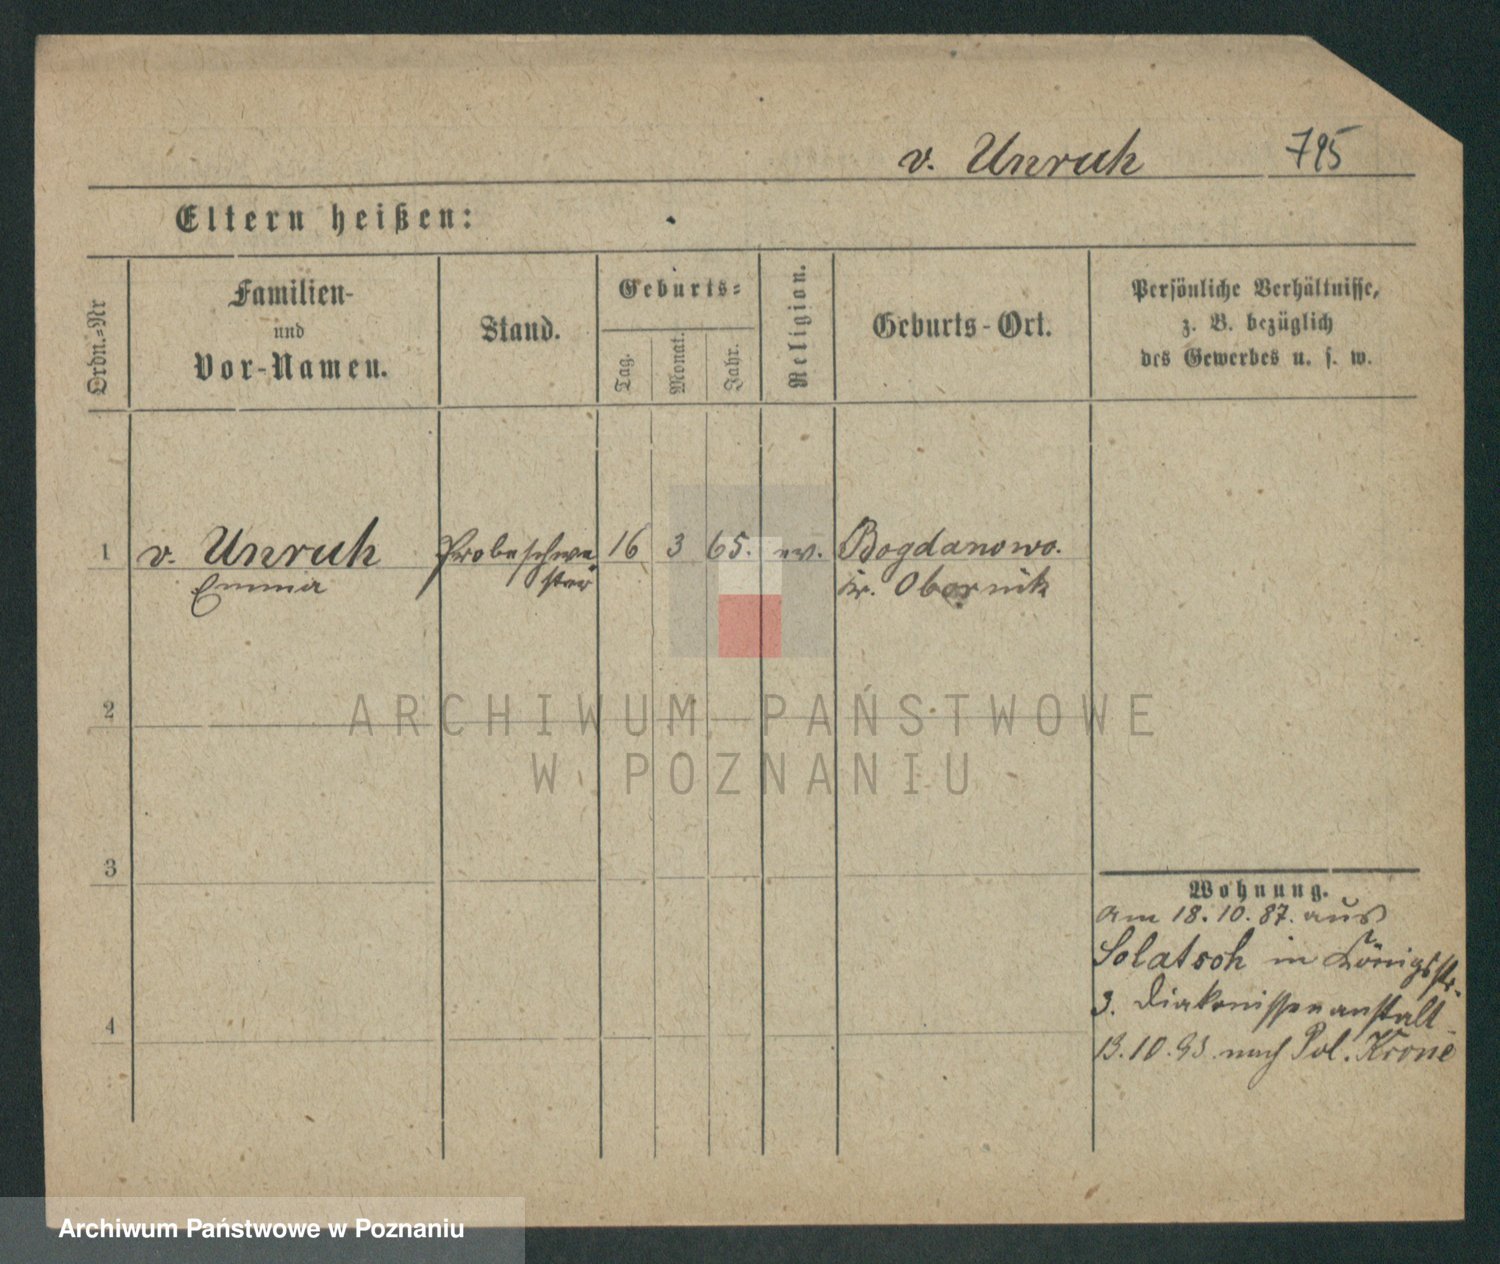 v. Unruh 795
Eltern heißen:
Ordn.-Nr
Familien-
und
Vor-Namen.
Stand.
Geburts-
Tag.
Monat.
Jahr.
Religion.
Geburts-Ort.
Persönliche Verhältnisse,
z. B. bezüglich
des Gewerbes u. s. w.
1 v. Unruh Probeschwe 16 3 65. ev. Bogdanowo.
Emma ster Kr. Obornik
2
3
4
Wohnung.
am 18. 10. 87. aus
Solatsch in Königsstr.
3. Diakonissenanstalt
13. 10. 93 nach Pol. Krone
ARCHIWUM PAŃSTWOWE
W POZNANIU
Archiwum Państwowe w Poznaniu